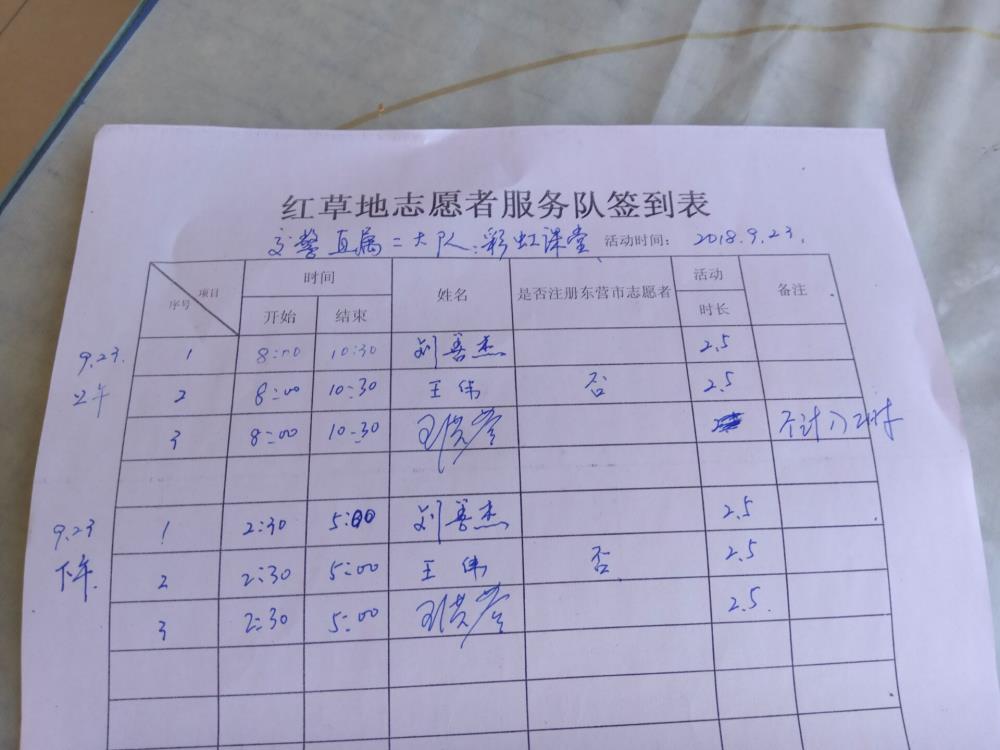 红草地志愿者服务队签到表
交警直属二大队:彩虹课堂 活动时间: 2018.9.23.
项目 序号 时间 姓名 是否注册东营市志愿者 活动 备注
开始 结束 时长
9.23. 1 8:00 10:30 刘善杰 2.5
上午 2 8:00 10:30 王伟 否 2.5
3 8:00 10:30 不计入
9.23 1 2:30 5:00 刘善杰 2.5
下午 2 2:30 5:00 王伟 否 2.5
3 2:30 5:00 2.5.